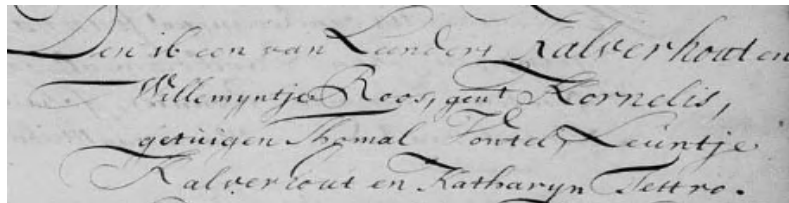 Den 16 een van Leendert Kalverhout en
Willemyntje Roos, gent Kornelis,
getuigen Thomas Pontel, Leuntje
Kalverhout en Katharyn Tettro.